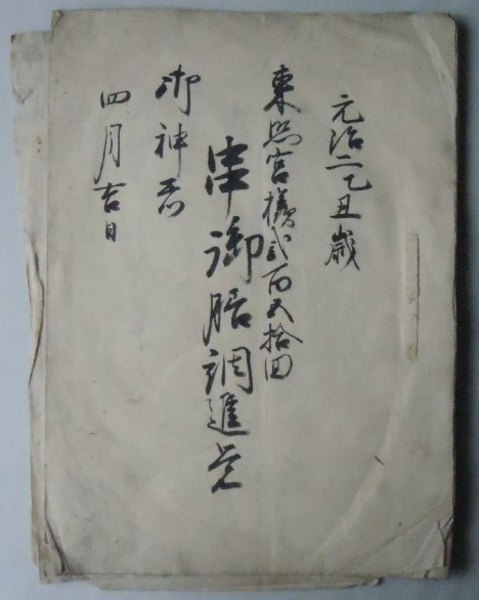 元治二乙丑歳
東照宮様弐百五拾回
御神忌
串御膳調進覚
四月吉日